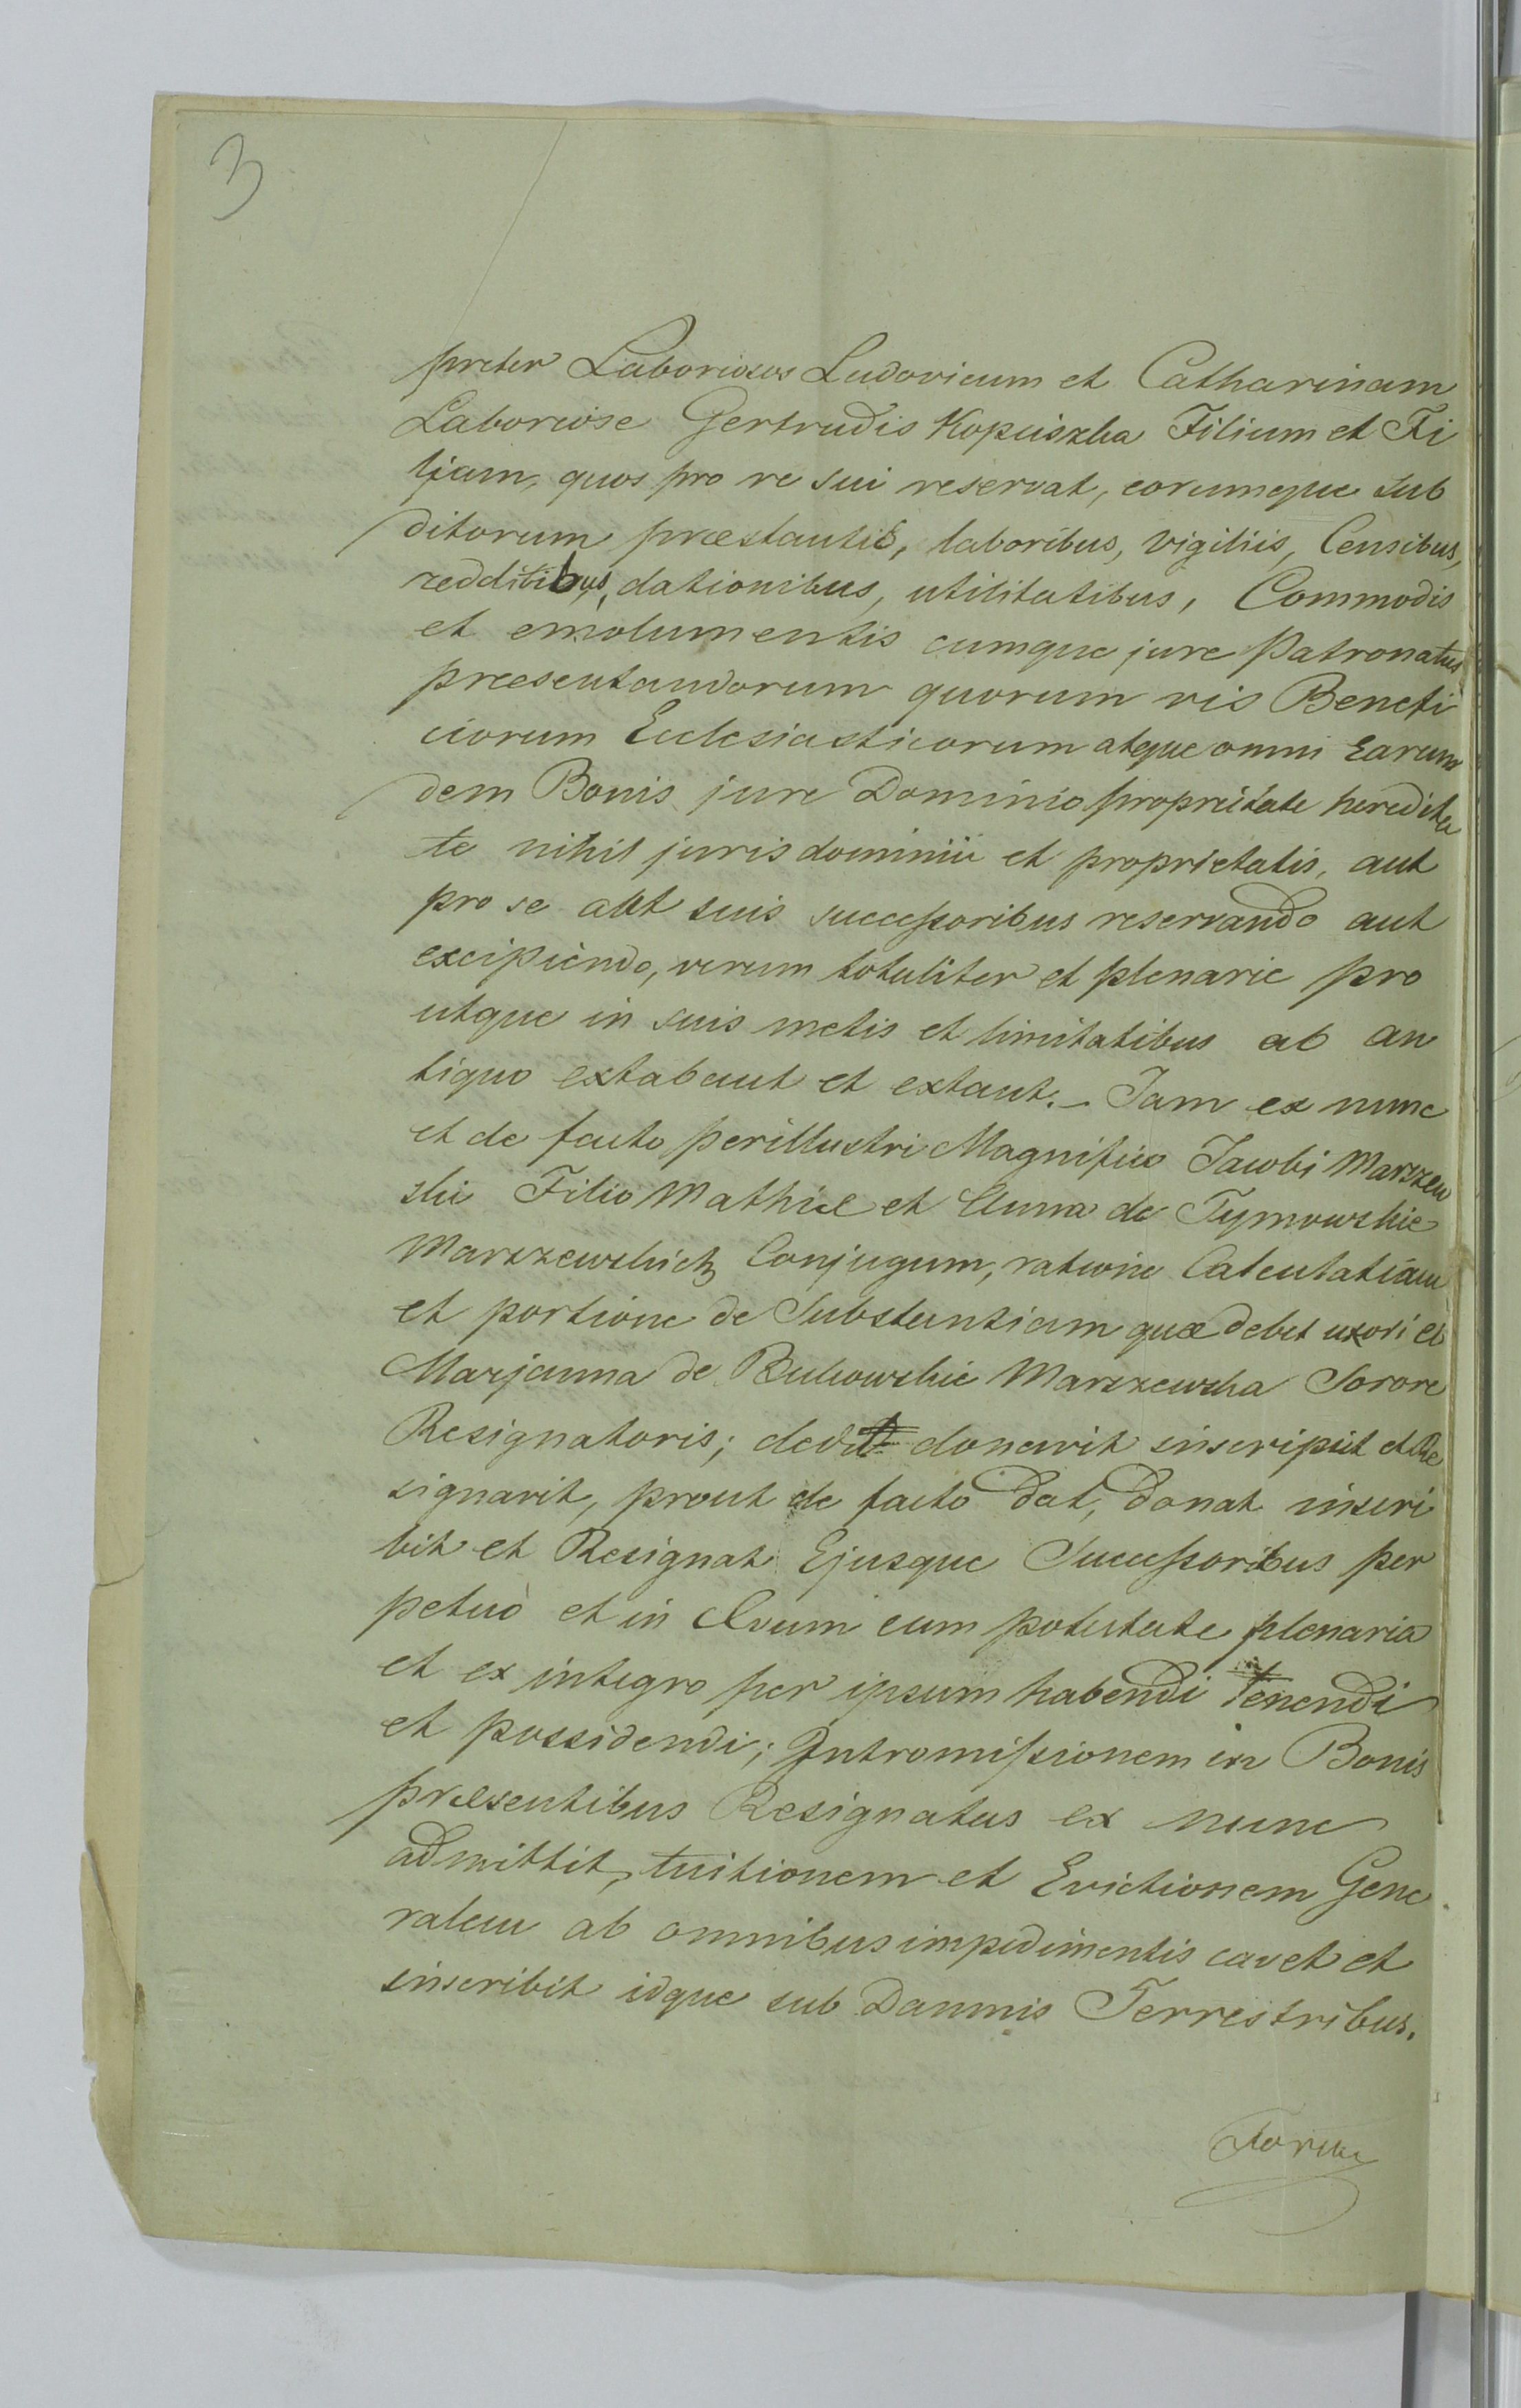 3
preter Laboriosos Ludovicum et Catharinam
Laboriose Gertrudis Kopciszka Filium et Fi
liam, quos pro re sui reservat, eorumque sub
ditorum præstantis, laboribus, vigiliis, Censibus,
redditibus, dationibus, utilitatibus, Commodis
et emolumentis cumque jure Patronatus
præsentandorum quorum vis Benefi
ciorum Ecclesiasticorum atque omni Earum
dem Bonis jure Dominio proprietate heredita
te nihil juris dominii et proprietatis, aut
pro se aut suis successoribus reservando aut
excipiendo, verum totaliter et plenarie pro
utque in suis metis et limitatibus ab an
tiquo extabant et extant. – Jam ex nunc
et de facto perillustri Magnifico Jacobi Marszew
ski Filio Mathiæ et Anna de Tymowskie
Marszewskich Conjugum, ratione Calculatiam
et portione de Substantiam quæ debet uxori ei
Marjanna de Bukowskie Marszewska Sorore
Resignatoris; dedit donavit inscripsit et Re
signavit, prout de facto dat, donat inscri
bit et Resignat Ejusque Successoribus per
petuò et in Ævum cum potestate plenaria
et ex integro per ipsum habendi tenendi
et possidendi; Intromissionem in Bonis
præsentibus Resignatus ex nunc
admittit, tuitionem et Evictionem Gene
ralem ab omnibus impedimentis cavet et
inscribit idque sub Damnis Terrestribus.